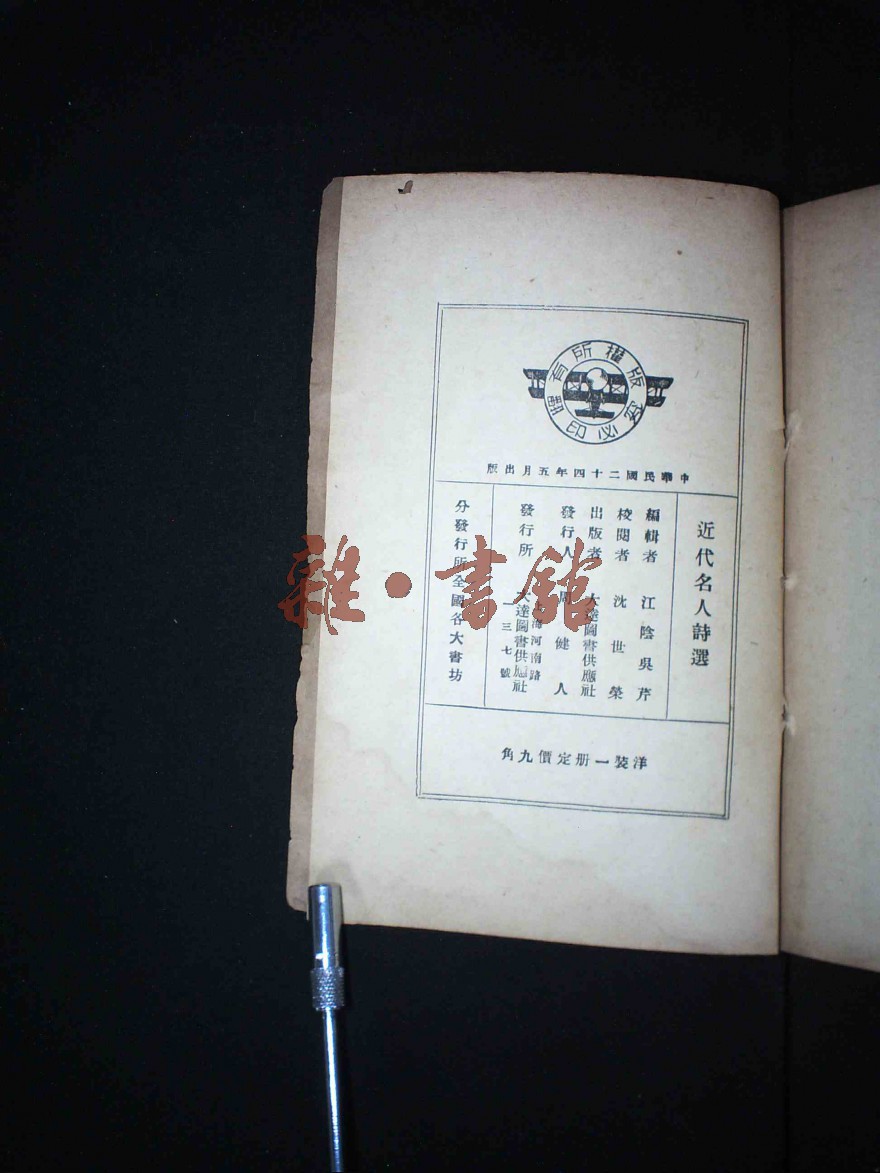 版權所有
翻印必究
中華民國二十四年五月出版
近代名人詩選
編輯者 江陰吳芹
校閱者 沈世榮
出版者 大達圖書供應社
發行人 周健人
發行所 上海河南路一三七號
大達圖書供應社
分發行所全國各大書坊
洋裝一册定價九角
雜·書館